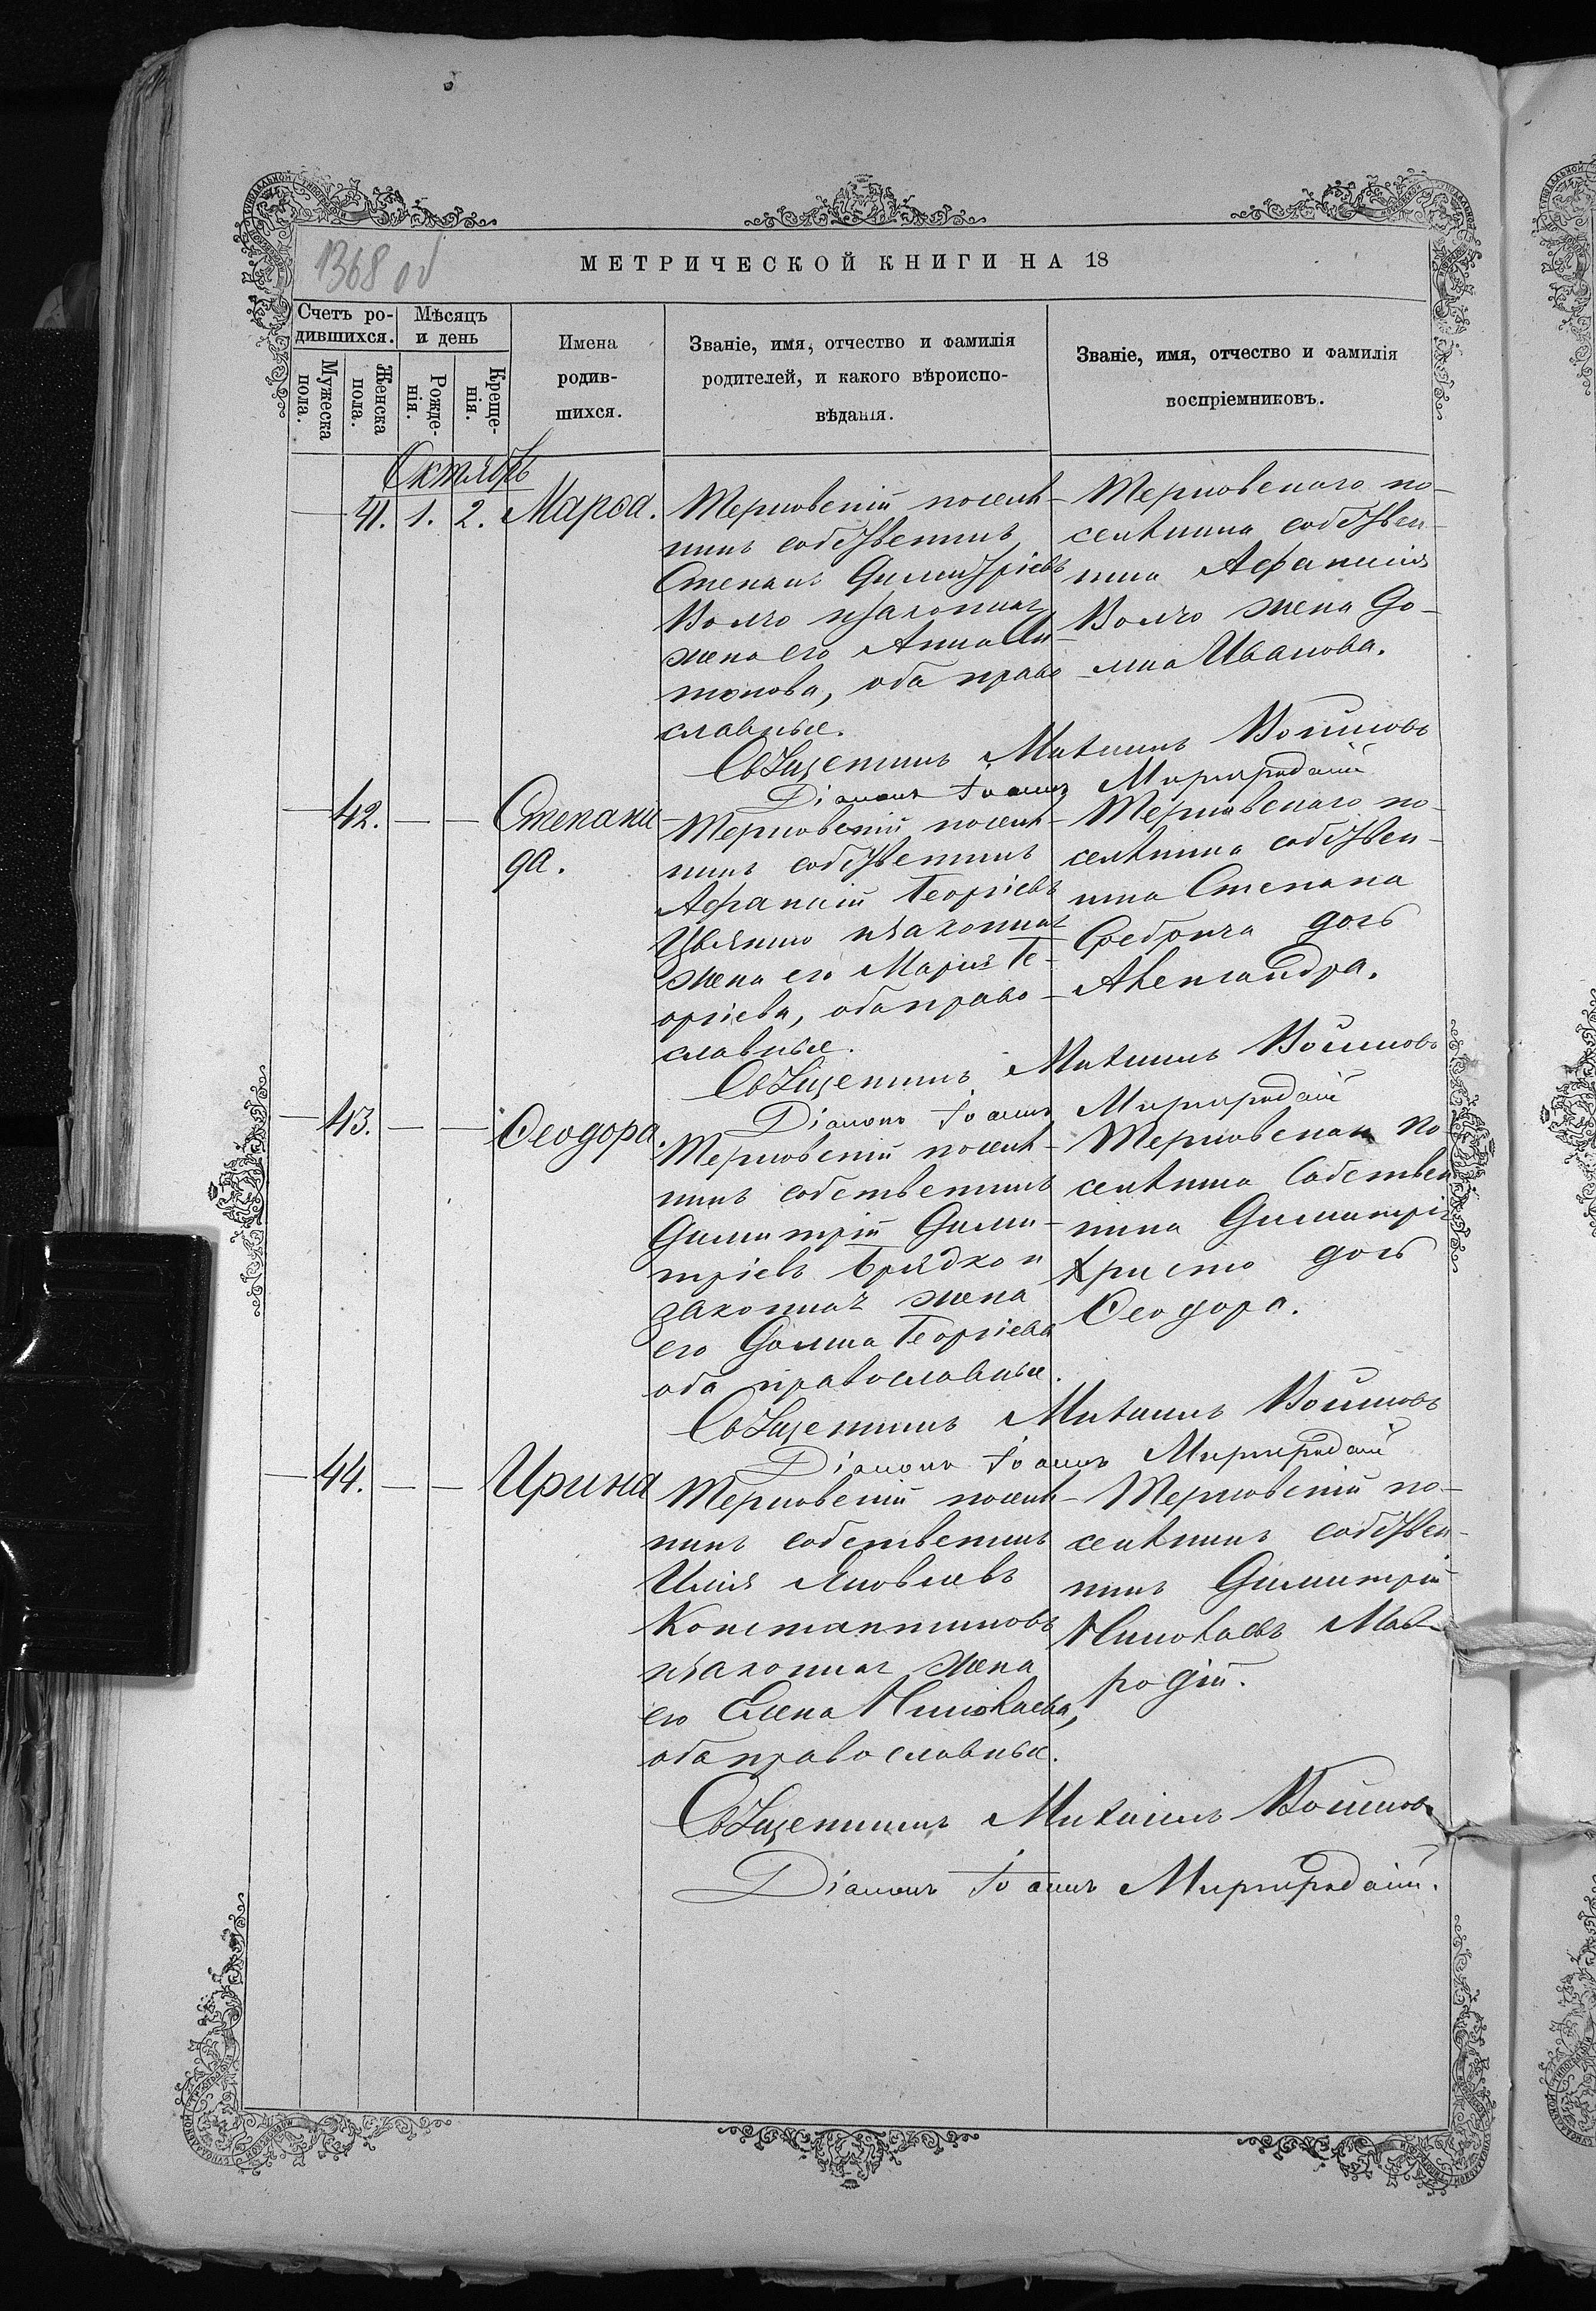 1368 об
МЕТРИЧЕСКОЙ КНИГИ НА 18
Счетъ ро-
дившихся.
Мѣсяцъ
и день
Мужеска
пола.
Женска
пола.
Рожде-
нія.
Креще-
нія.
Имена
родив-
шихся.
Званіе, имя, отчество и фамилія
родителей, и какого вѣроиспо-
вѣданія.
Званіе, имя, отчество и фамилія
воспріемниковъ.
Октябрь
41. 1. 2. Марѳа.
Терновскій поселя-
нинъ собственникъ
Степанъ Димитріевъ
Волчо и законная
жена его Анна Ан-
тонова, оба право
славные.
Терновскаго по-
селянина собствен-
ника Аѳанасія
Волчо жена До-
мна Иванова.
Священникъ Михаилъ Войновъ
Діаконъ Іоаннъ
42. — — Степани
да.
Терновскій поселя-
нинъ собственникъ
Аѳанасій Георгіевъ
и законная
жена его Марія Ге-
оргіева, оба право-
славные.
Терновскаго по-
селянина собствен-
ника Степана
дочь
Александра.
Священникъ Михаилъ Войновъ
Діаконъ Іоаннъ
43. — — Ѳеодора.
Терновскій поселя-
нинъ собственникъ
Димитрій Дими-
тріевъ и
законная жена
его Домна Георгіева
оба православные.
Терновскаго по-
селянина собствен
ника Димитрія
Христо дочь
Ѳеодора.
Священникъ Михаилъ Войновъ
Діаконъ Іоаннъ
44. — — Ирина
Терновскій поселя-
нинъ собственникъ
Илія Яковлевъ
Константиновъ
и законная жена
его Елена Николаева,
оба православные.
Терновскій по-
селянинъ собствен-
никъ Димитрій
Николаевъ Мав-
родій.
Священникъ Михаилъ Войновъ
Діаконъ Іоаннъ